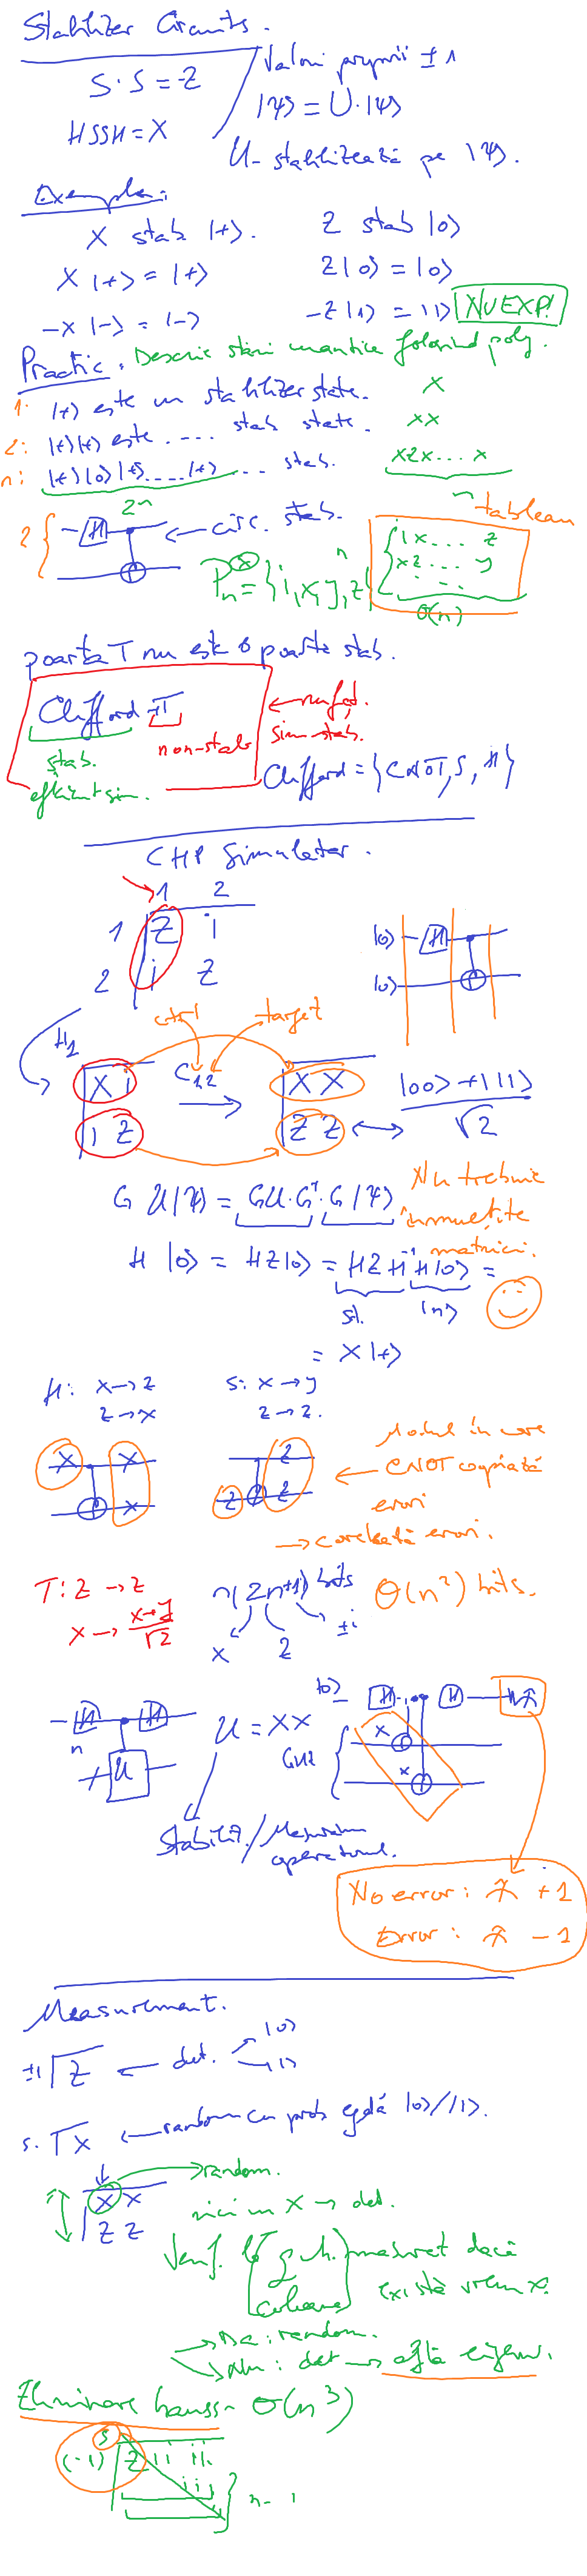 Stabilizer Circuits.
S·S=Z
HSSH=X
Valori proprii ±1
|ψ> = U·|ψ>
U- stabilizează pe |ψ>.
Exemple:
X stab |+>.
Z stab |0>
X |+> = |+>
Z|0> = |0>
-X |-> = |->
-Z|1> = |1>
NU EXP!
Practic, Descrie stări cuantice folosind
1: |+> este un stabilizer state. X
2: |+>|+> este .... stab state. XX
n: |+>|0>|+>....|+> ... stab. XZX...X
2^n
n
tableau
2 { H
circ. stab.
P_n = {i,x,y,z}^⊗n
ix... z
xz ... y
...
O(n)
poarta T nu este o poartă stab.
Clifford+T
stab.
non-stab
sim stab.
eficient sim.
Clifford = {CNOT, S, H}
CHP Simulator.
1 2
1 Z i
2 i Z
|0> H
|0>
H1
ctrl
target
X i
i Z
C1,2
X X
Z Z
|00>+|11>
√2
G U|ψ> = GU·G†·G|ψ>
Nu trebuie înmulțite matrici.
H |0> = HZ|0> = HZH† H|0> =
= X|+>
H: X→Z
Z→X
S: X→Y
Z→Z.
X X
X
Z
Z Z
Modul în care
CNOT copiată
erori
→ corelată erori.
T: Z→Z
X→ X+Y
√2
n(2n+1) bits
x z ±i
Θ(n²) bits.
H H
n
U
U = XX
|0> H H
GHZ
X
X
operatorul.
No error: +1
Error: -1
Measurement.
±1 Z ← det. |0>
|1>
s. X ← random cu prob egală |0>/|1>.
X X
Z Z
→random.
nici un X → det.
Verif.
coloana
măsurat dacă
există vreun X.
→ Da: random.
→ Nu: det → află eigenv.
Eliminare Gauss- O(n³)
s
(-1) Z i i i i
i i
n-1